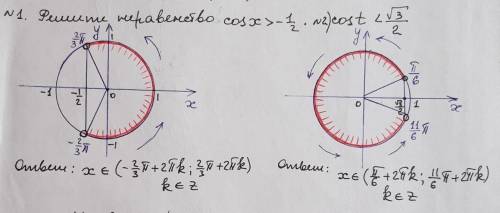 №1. Решите неравенство cosx>-1/2. №2) cost <√3/2
y
1
2/3π
-1
-1/2
0
1
x
-2/3π
-1
Ответ: x ∈ (-2/3π+2πk; 2/3π+2πk)
k ∈ z
y
π/6
0
√3/2
1
x
11/6π
Ответ:
x∈(π/6+2πk; 11/6π+2πk)
k∈z